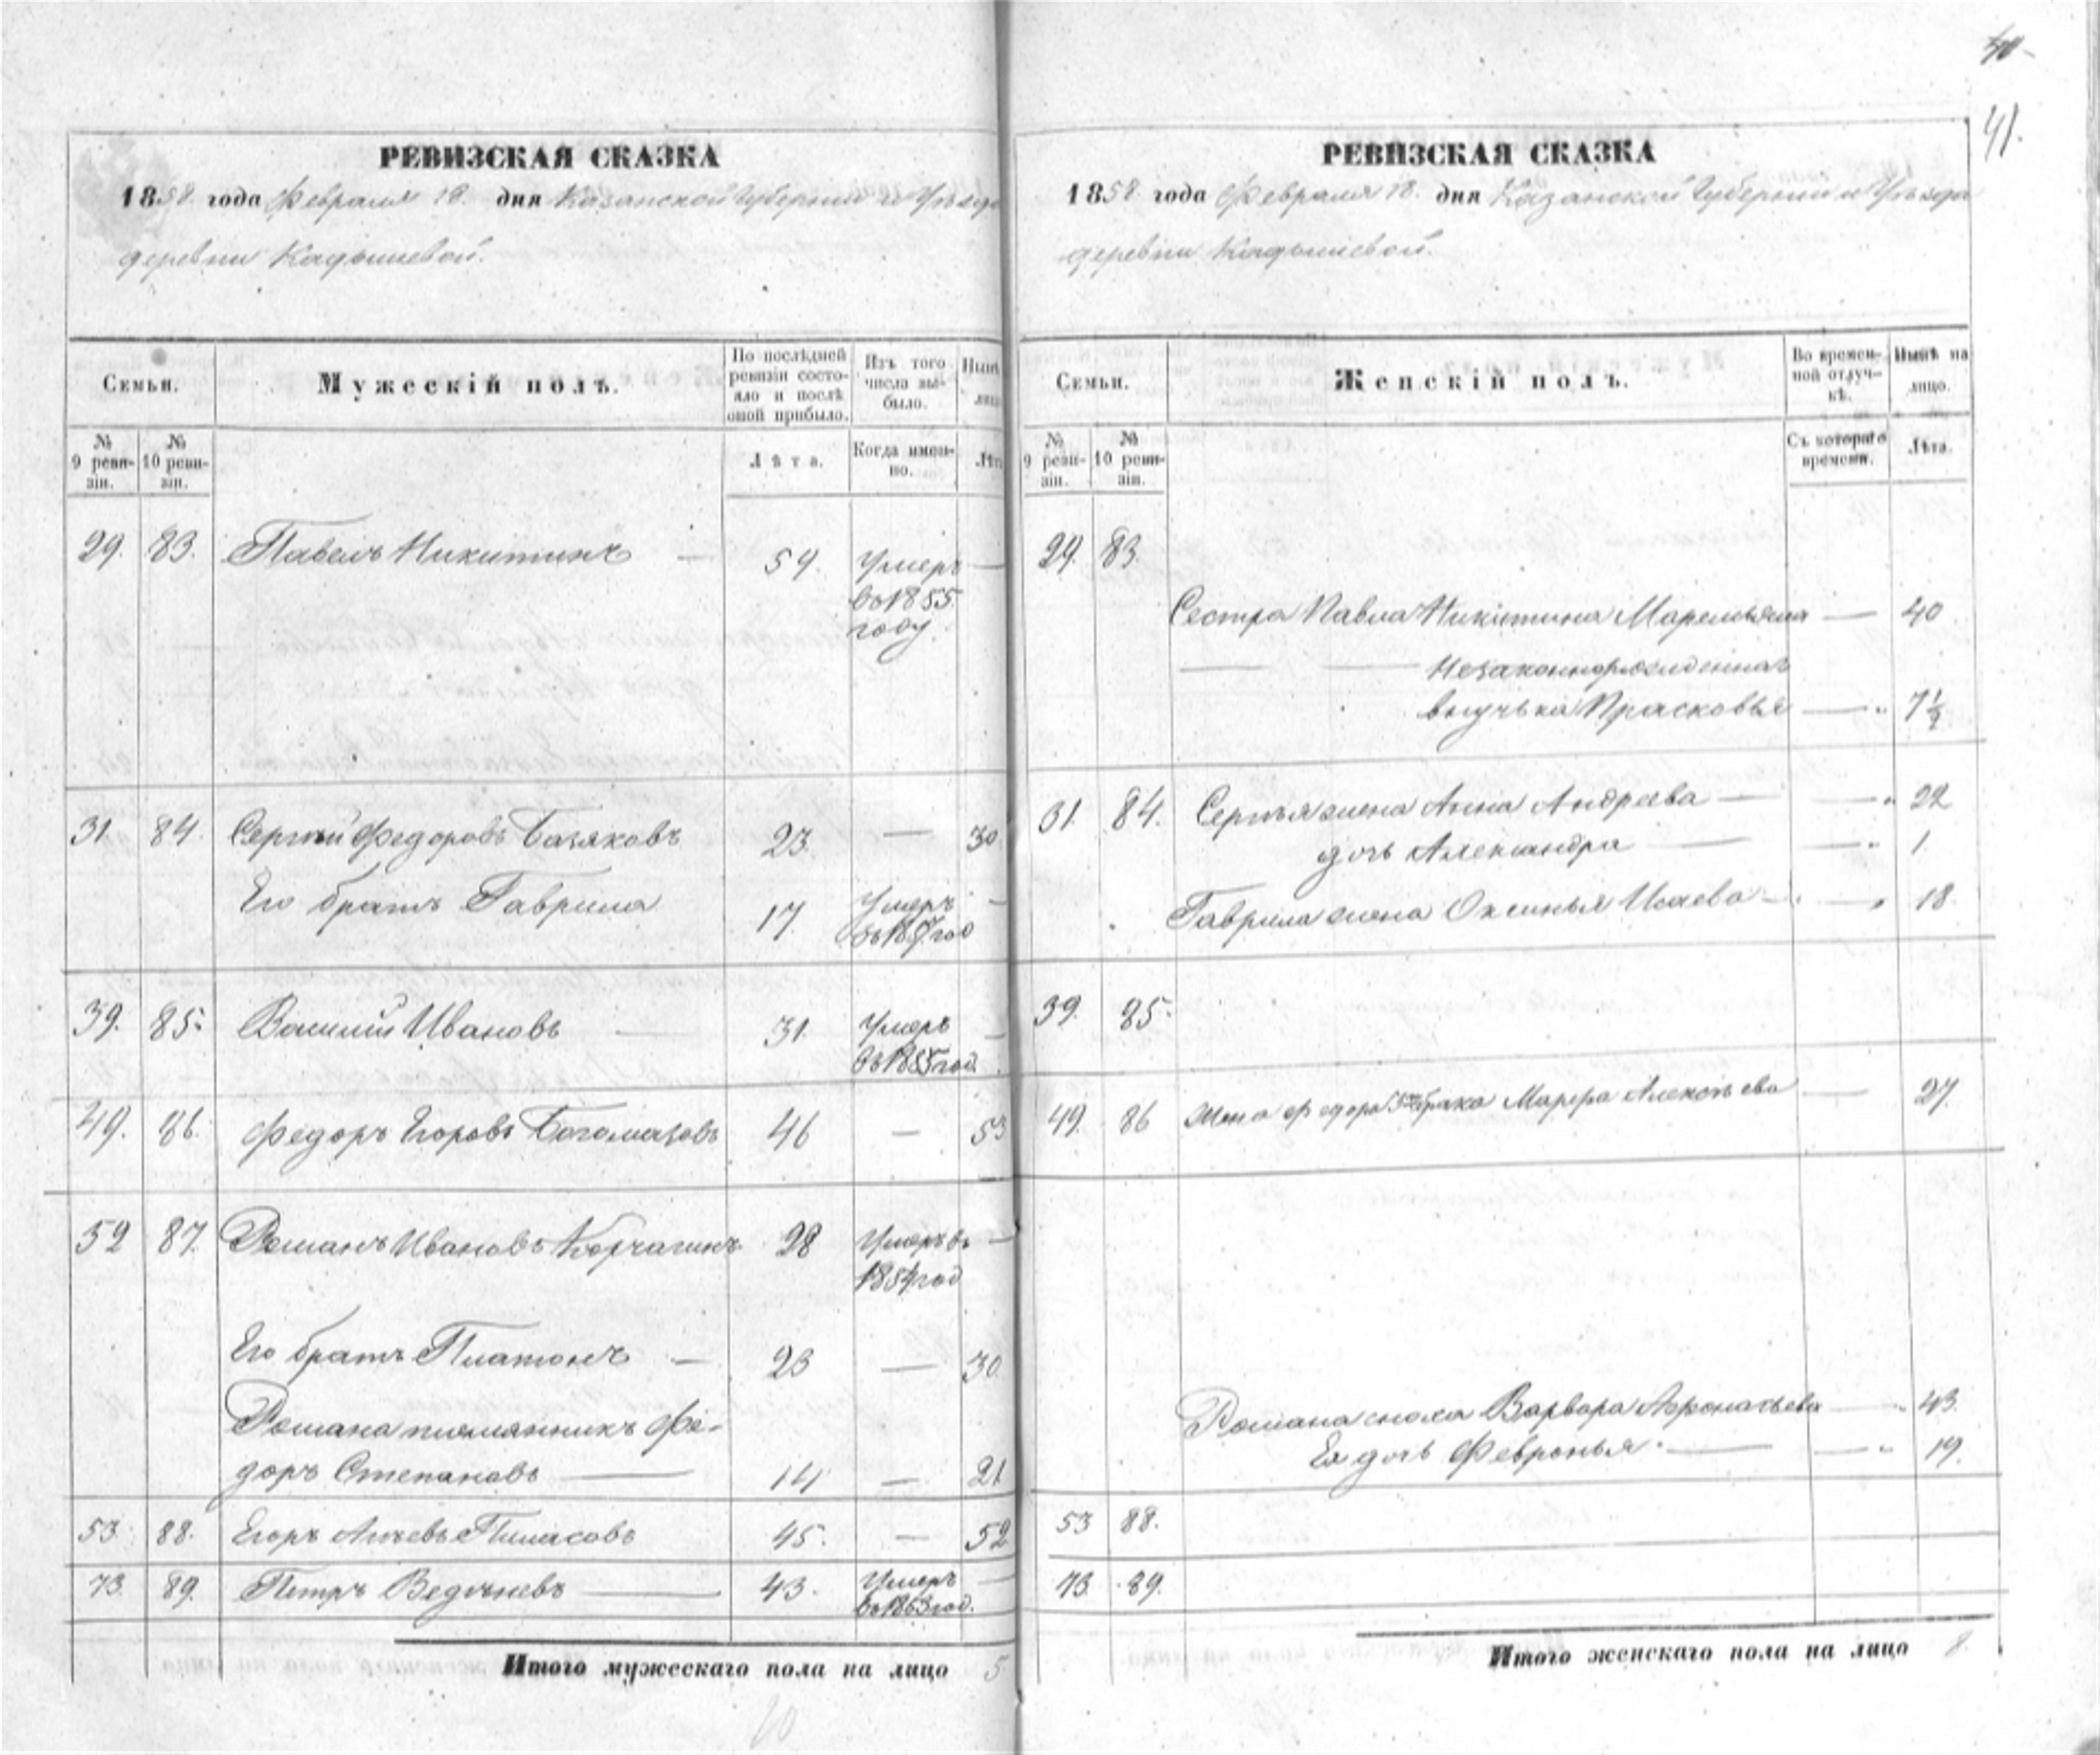 40
41.
РЕВИЗСКАЯ СКАЗКА
1858 года Февраля 18. дня Казанской Губернии и Уѣзда
деревни Кадышевой.
Семьи.
Мужескій полъ.
По послѣдней ревизіи состо-
яло и послѣ оной прибыло.
Изъ того числа вы-
было.
Нынѣ
лицо
№ 9 реви-
зіи.
№ 10 реви-
зіи.
Лѣта.
Когда имен-
но.
Лѣта
29. 83. Павелъ Никитинъ — 59. Умеръ —
въ 1855
году.
31. 84. Сергѣй Федоровъ Базяковъ 23 — 30
Его братъ Гаврила 17. Умеръ —
въ 1857 год
39. 85. Василій Ивановъ — 31. Умеръ —
въ 1855 год.
49. 86. Федоръ Егоровъ Богомазовъ 46 — 53
52 87. Романъ Ивановъ Корчагинъ 28 Умеръ въ —
1854 год
Его братъ Платонъ — 23 — 30
Романа племянникъ Фе-
доръ Степановъ — 14 — 21
53. 88. Егоръ 45. — 52
73. 89. Петръ — 43. Умеръ —
год.
Итого мужескаго пола на лицо 5
РЕВИЗСКАЯ СКАЗКА
1858 года Февраля 18. дня Казанской Губерніи и Уѣзда
деревни Кадышевой.
Семьи.
Женскій полъ.
Во времен-
ной отлуч-
кѣ.
Нынѣ на
лицо.
№ 9 реви-
зіи.
№ 10 реви-
зіи.
Съ котораго
времени.
Лѣта.
29. 83.
Сестра Павла Никитина Маремьяна — 40
— — Незаконнорожденная
внучька Прасковья — 7½
31. 84. Сергѣя жена Анна Андреева — — 22
дочь Александра — — 1
Гаврила жена Оксинья Исаева — — 18
39. 85.
49. 86 Жена Федора брака Марфа Алексѣева — 27.
Романа сноха Варвара Афонасьева — 43.
Ея дочь Февронья — — 19.
53 88.
73. 89.
Итого женскаго пола на лицо 8.